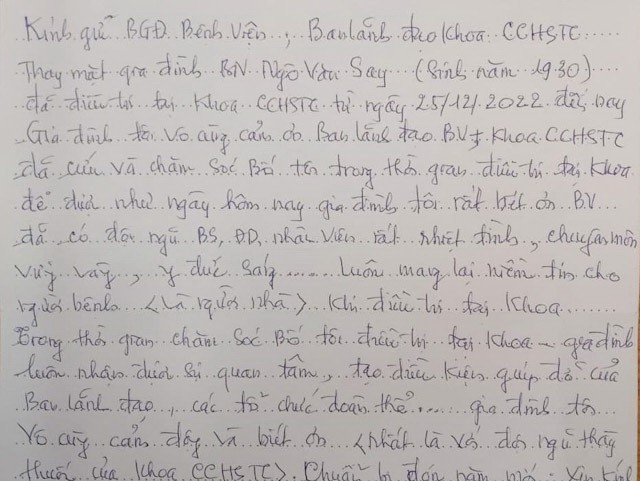 Kính gửi BGĐ Bệnh Viện, Ban lãnh đạo Khoa CCHSTC.....
Thay mặt gia đình BN Ngô Văn Say (Sinh năm 1930)....
đã điều trị tại Khoa CCHSTC từ ngày 25/12/2022 đến nay
Gia đình tôi vô cùng cảm ơn Ban lãnh đạo BV + Khoa CCHSTC
đã cứu và chăm sóc Bố tôi trong thời gian điều trị tại Khoa
để được như ngày hôm nay gia đình tôi rất biết ơn BV...
đã có đội ngũ BS, ĐD, nhân viên rất nhiệt tình, chuyên môn
vững vàng, y đức sáng...... Luôn mang lại niềm tin cho
người bệnh <và người nhà> khi điều trị tại Khoa.......
Trong thời gian chăm sóc Bố tôi điều trị tại Khoa - gia đình
luôn nhận được sự quan tâm, tạo điều kiện giúp đỡ của
Ban lãnh đạo, các tổ chức đoàn thể..... gia đình tôi
Vô cùng cảm động và biết ơn <nhất là với đội ngũ thầy
thuốc của Khoa CCHSTC> Chuẩn bị đón năm mới. Xin kính